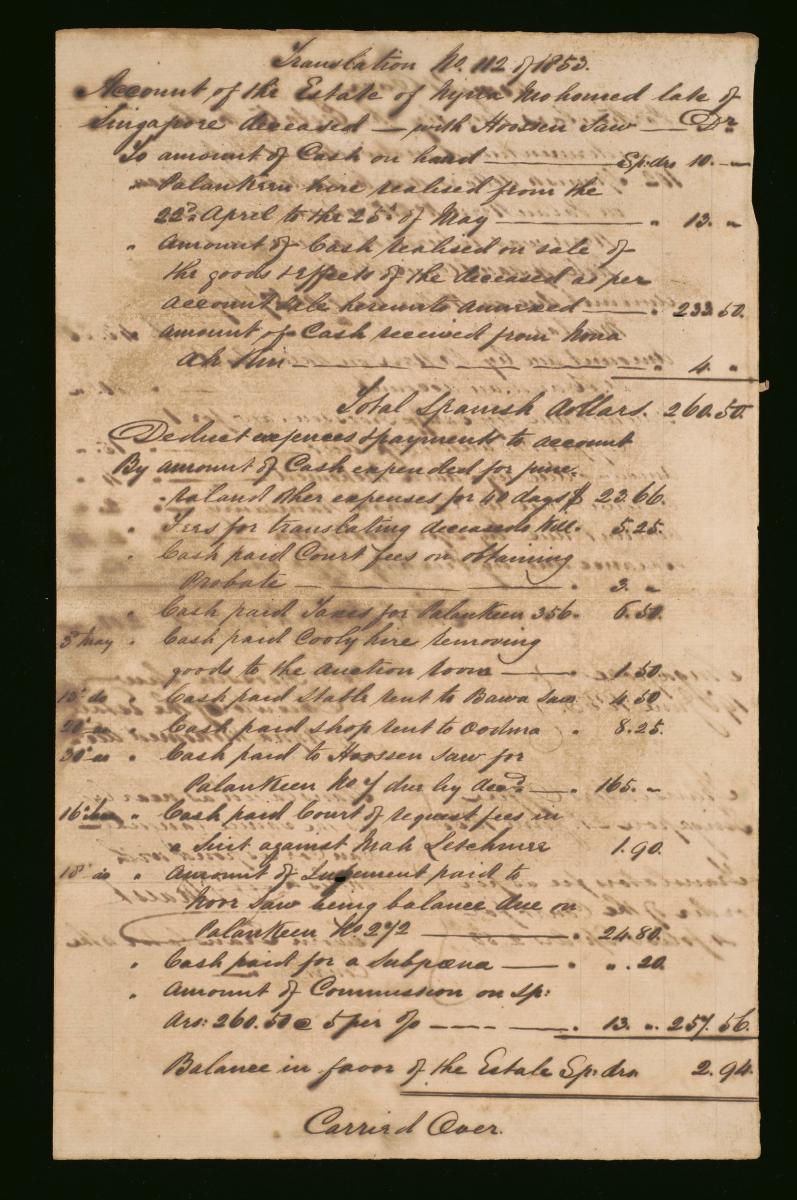 Translation No. 112 of 1853.
Account of the Estate of Nyna Mohomed late of
Singapore deceased — with Hoossen Saw — Dr
To amount of Cash on hand — Sp: drs 10. "
" Palankeen hire realised from the
22d April to the 25th of May — " 13. "
" Amount of Cash realised on sale of
the goods & effects of the deceased as per
account sale hereunto annexed — " 233.50.
amount of Cash received from Nona
Ah Him — " 4. "
Total Spanish dollars. 260.50.
Deduct expences & payments to account
By amount of Cash expended for fune-
-ral and other expenses for 40 days $ 23.66.
" Fees for translating deceased's Will " 5.25.
" Cash paid Court fees on obtaining
Probate — " 3. "
" Cash paid Taxes for Palankeen 356. 6.50.
3d May " Cash paid Cooly hire removing
goods to the Auction room — " 1.50.
do " Cash paid stable rent to Bawa Saw 4.50
do " Cash paid shop rent to " 8.25.
30th do " Cash paid to Hoossen Saw for
Palankeen No 7 due by decd — " 165. "
16th " Cash paid Court of request fees in
a Suit against Mah Letchmee 1.90.
18th do " Amount of Judgement paid to
Noor Saw being balance due on
Palankeen No. 272 — " 24.80.
" Cash paid for a Subpœna — " " .20.
" Amount of Commission on Sp:
drs: 260.50 @ 5 per % — " 13. " 257.56.
Balance in favor of the Estate Sp: drs. 2.94.
Carried Over.